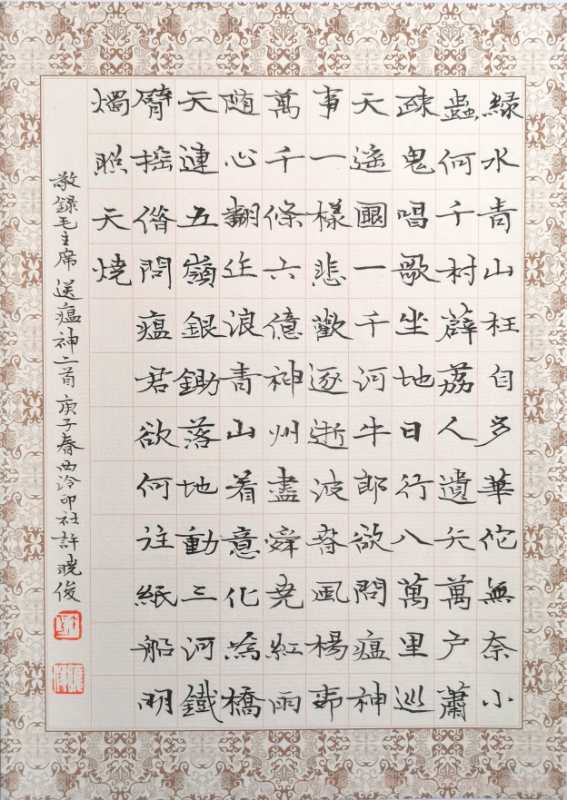 綠水青山枉自多華佗無奈小
蟲何千村薜荔人遺矢萬户蕭
疎鬼唱歌坐地日行八萬里巡
天遥一千河牛郎欲問瘟神
事一樣悲歡逐逝波春風楊
萬千條六億神州盡舜堯紅雨
随心翻作浪青山着意化為橋
天連五嶺銀鋤落地動三河鐵
臂摇借問瘟君欲何往紙船明
燭照天燒
敬錄毛主席送瘟神二首庚子春西泠印社許曉俊